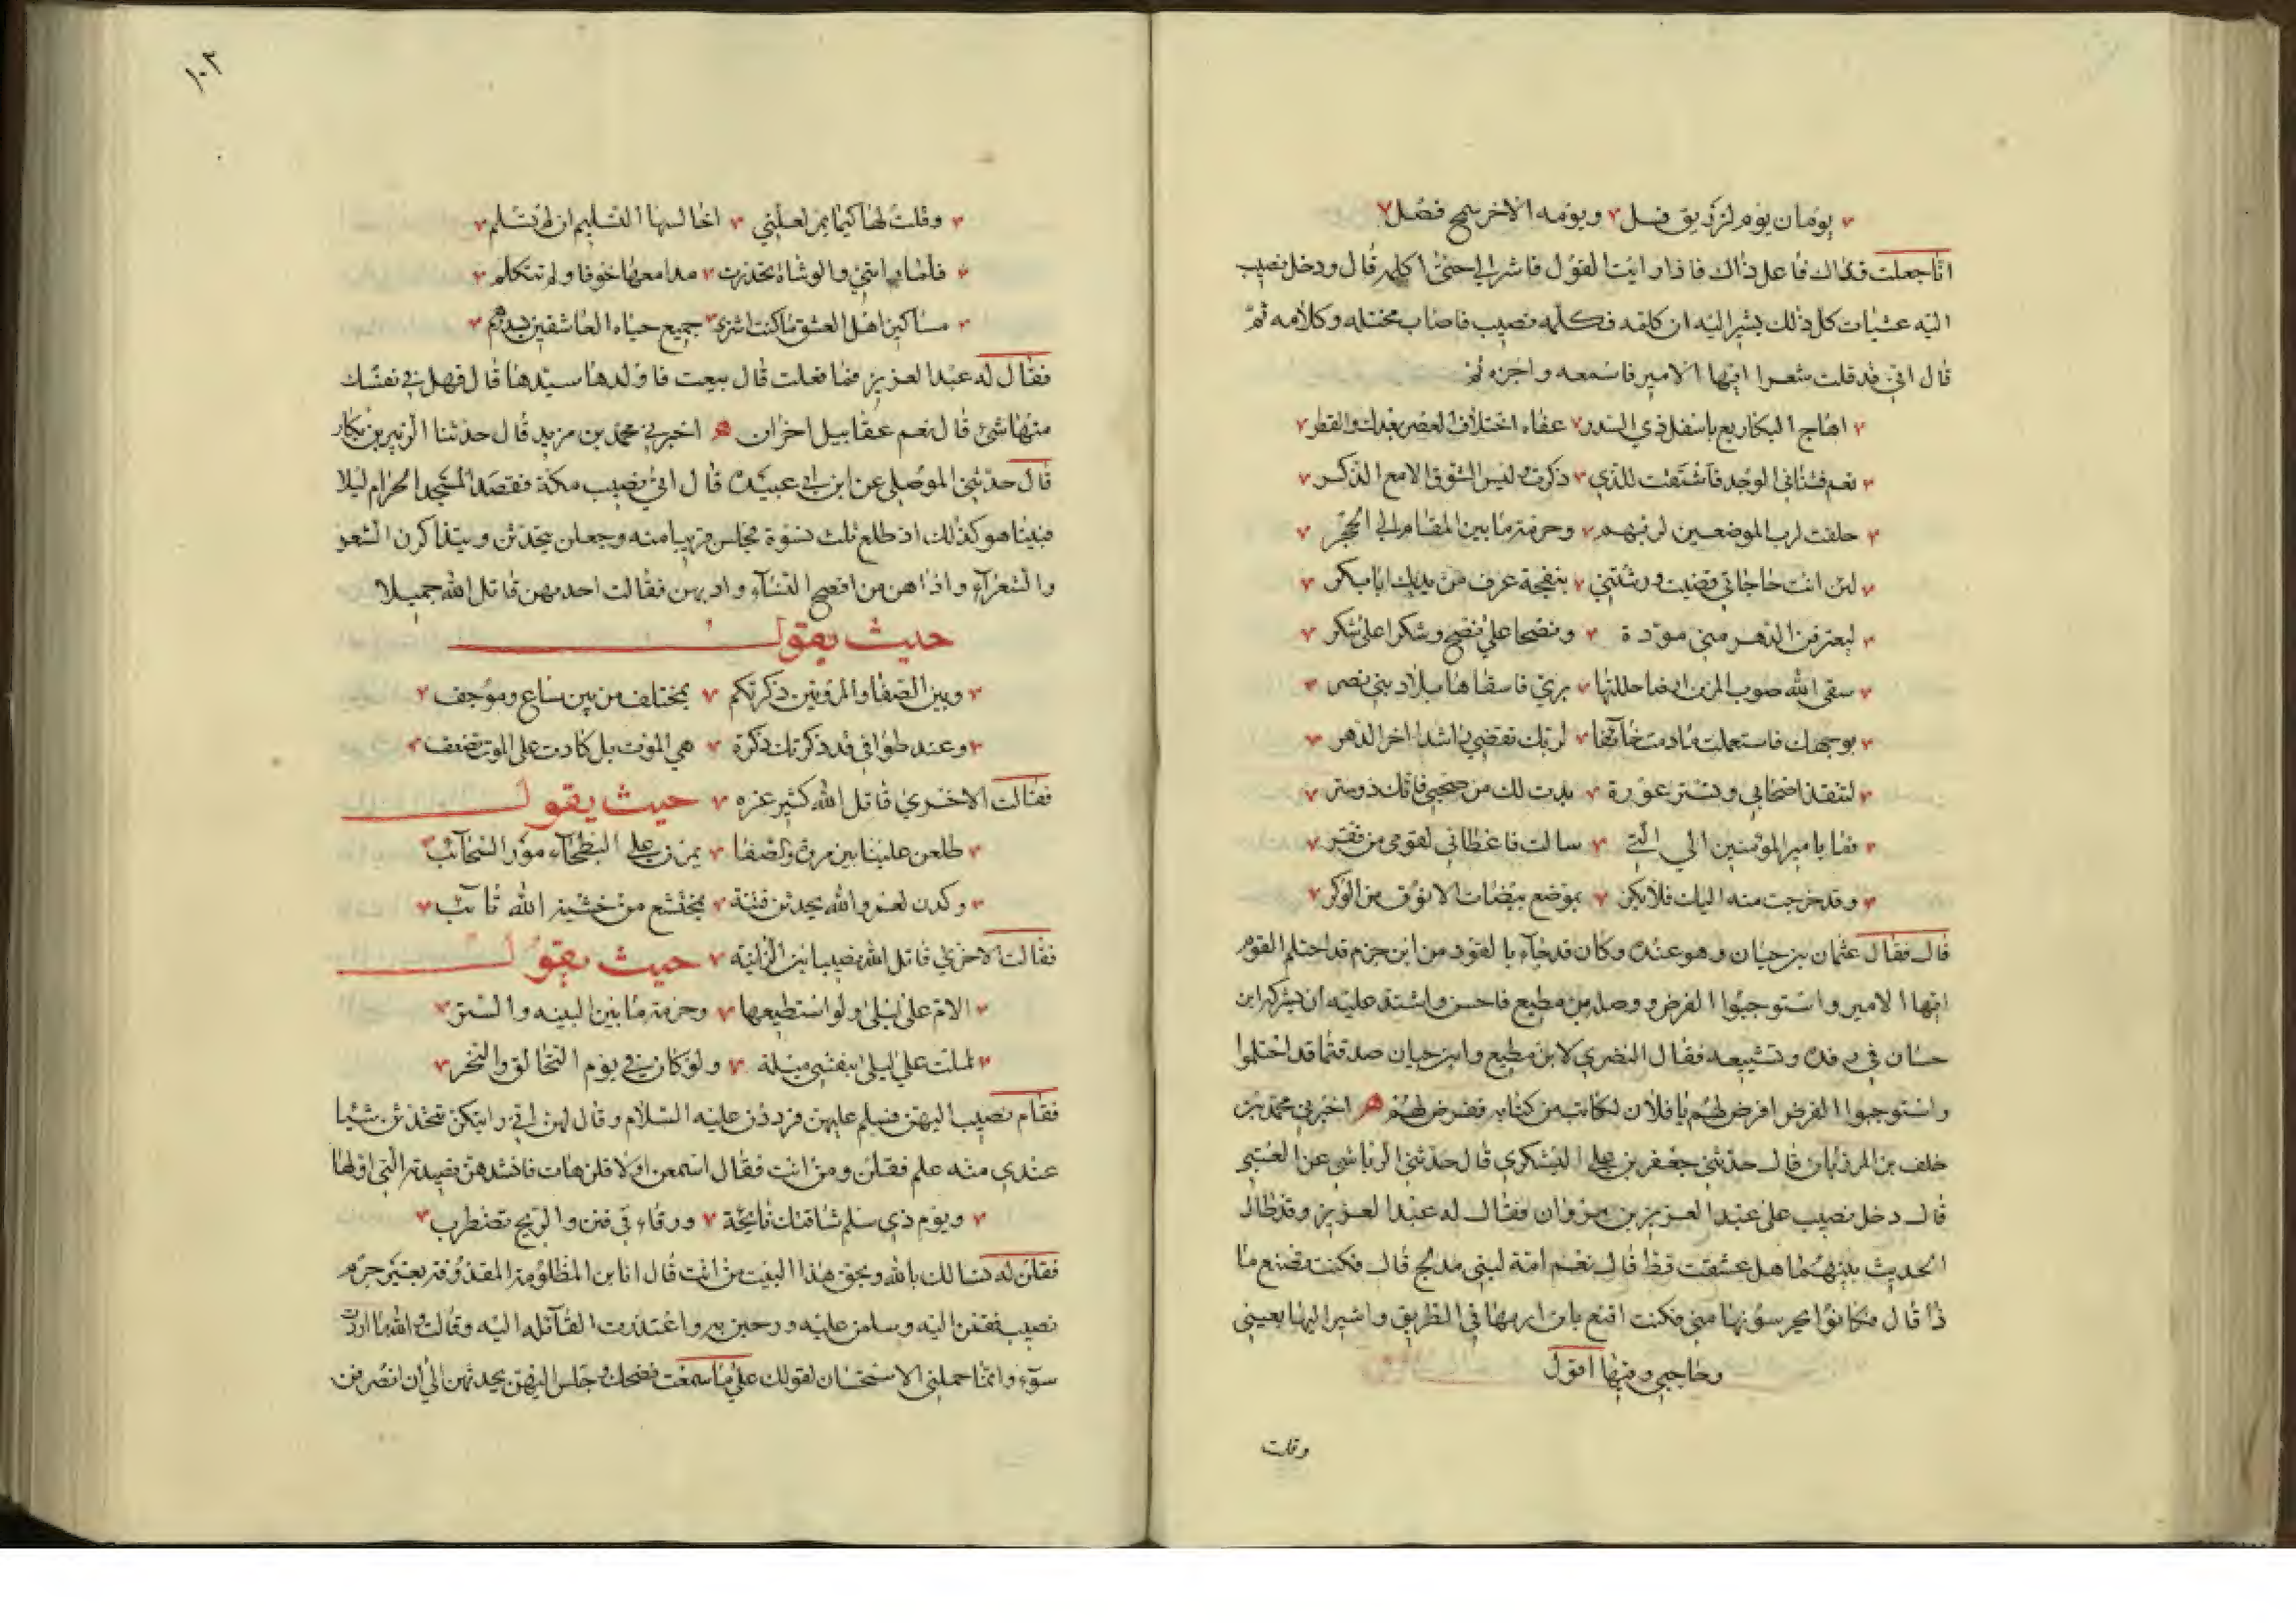 يومان يوم لرزيق فسل ويومه الاخر سمح فضل
انا جعلت فداك فاعل ذاك فاذا رايت القول فاشر الي حتى اكلمه قال ودخل نصيب
اليه عشيات كل ذلك يشير اليه ان كلمه فكلمه نصيب فاصاب مختله وكلامه ثم
قال اني قد قلت شعرا ايها الامير فاسمعه واجزه ثم
اهاج البكا ربع باسفل ذي السدر عفاه اختلاف العصر بعدك والقطر
نعم فثناني الوجد فاشتقت للذي ذكرت وليس الشوق الا مع الذكر
حلفت لرب الموضعين لربهم وحرمة ما بين المقام الى الحجر
لئن انت حاجاتي قضيت ورشتني بنفحة عرف من يديك ابا بكر
ليعترفن الدهر مني مودة ونصحا على نصح وشكرا على شكر
سقى الله صوب المزن ارضا حللتها بري فاسقاها بلاد بني نصر
بوجهك فاستعملت ما دمت خائفا لربك تقضي راشدا اخر الدهر
لتنقذ اصحابي وتستر عورة بدت لك من صحبي فانك ذو ستر
فما بامير المؤمنين الى التي سالت فاعطاني لقومي من فقر
وقد خرجت منه اليك فلا يكن بموضع بيضات الانوق من الوكر
قال فقال عثمان بن حيان وهو عنده وكان قد جاء بالقود من ابن حزم قد احتلم القوم
ايها الامير واستوجبوا الفرض ووصله بن مطيع فاحسن واشتد عليه ان يشركه ابن
حسان في رفده وتشييعه فقال النضري لابن مطيع وابن حيان صدقتما قد احتلموا
واستوجبوا الفرض افرض لهم يا فلان لكاتب من كتابه ففرض لهم ه اخبرني محمد بن
خلف بن المرزبان قال حدثني جعفر بن علي اليشكري قال حدثني الرياشي عن العتبي
قال دخل نصيب على عبد العزيز بن مروان فقال له عبد العزيز وقد طال
الحديث بينهما هل عشقت قط قال نعم امة لبني مدلج قال فكنت تصنع ما
ذا قال فكانوا يحرسونها مني فكنت اقنع بان اراها في الطريق واشير اليها بعيني
وحاجبي وفيها اقول
وقلت
١٠٢
وقلت لها كيما يمر لعلني اخالسها التسليم ان لم تسلم
فلما راتني والوشاة تحدرت مدامعها خوفا ولم تتكلم
مساكين اهل العشق ما كنت اشتري جميع حياة العاشقين بدرهم
فقال له عبد العزيز فما فعلت قال بيعت فاولدها سيدها قال فهل في نفسك
منها شئ قال نعم عقابيل احزان ه اخبرني محمد بن مزيد قال حدثنا الزبير بن بكار
قال حدثني الموصلي عن ابن ابي عبيدة قال اتى نصيب مكة فقصد المسجد الحرام ليلا
فبينا هو كذلك اذ طلع ثلث نسوة فجلس قريبا منه وجعلن يتحدثن ويتذاكرن الشعر
والشعرآء واذا هن من افصح النسآء وادبهن فقالت احدهن قاتل الله جميلا
حيث يقول
وبين الصفا والمروتين ذكرتكم بمختلف من بين ساع وموجف
وعند طوافي قد ذكرتك ذكرة هي الموت بل كادت على الموت تضعف
فقالت الاخرى قاتل الله كثير عزه حيث يقول
طلعن علينا بين مروة والصفا يمرن على البطحآء مور السحآئب
وكدن لعمر والله يحدثن فتنة بمختشع من خشية الله تآئب
فقالت الاخرى قاتل الله نصيبا ابن الزانية حيث يقول
الام على ليلى ولو استطيعها وحرمة ما بين البنيه والستر
لملت على ليلى بنفسي ميلة ولو كان في يوم التحالق والنحر
فقام نصيب اليهن فسلم عليهن فرددن عليه السلام وقال لهن اني رايتكن تتحدثن شيئا
عندي منه علم فقلن ومن انت فقال اسمعن اولا قلن هات فانشدهن قصيدته التي اولها
ويوم ذي سلم شاقتك نائحة ورقاء في فنن والريح تضطرب
فقلن له نسالك بالله وبحق هذا البيت من انت قال انا ابن المظلومة المقذوفة بغير جرم
نصيب فقمن اليه وسلمن عليه ورحبن به واعتذرت القآئله اليه وقالت والله ما اردت
سوء وانما حملني الاستحسان لقولك على ما سمعت فضحك وجلس اليهن يحدثهن الى ان انصرفن